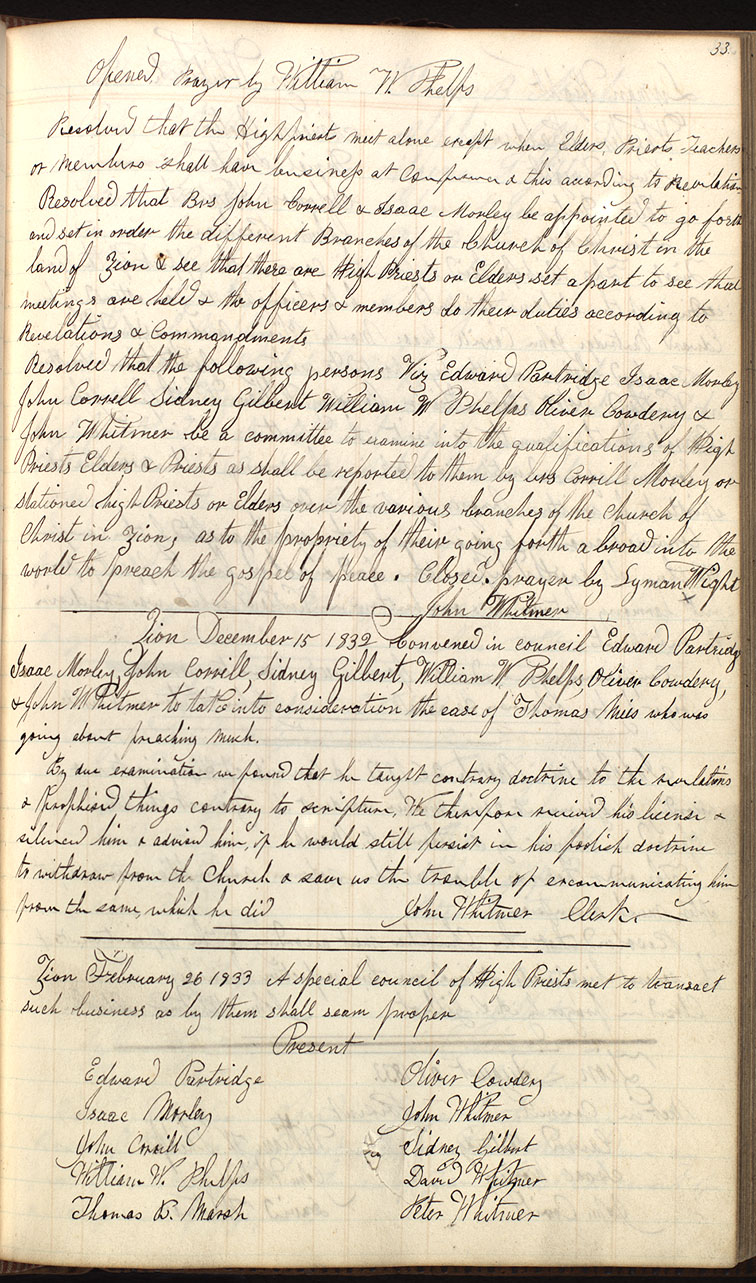 33.
Opened Prayer by William W. Phelps
Resolved that the High priests meet alone except when Elders, Priests Teachers
or members shall have business at Conference & this according to Revelation
Resolved that Brs John Correll & Isaac Morley be appointed to go forth
and set in order the different Branches of the Church of Christ in the
land of Zion & see that there are High Priests or Elders set apart to see that
meetings are held & the officers & members do their duties according to
Revelations & Commandments
Resolved that the following persons Viz Edward Partridge Isaac Morley
John Correll Sidney Gilbert William W Phelps Oliver Cowdery &
John Whitmer be a committee to examine into the qualifications of High
Priests Elders & Priests as shall be reported to them by brs Corrill Morley or
stationed high Priests or Elders over the various branches of the Church of
Christ in Zion, as to the propriety of their going forth abroad into the
world to preach the gospel of peace. Closed. prayer by Lyman Wight
John Whitmer
Zion December 15 1832 Convened in council Edward Partridge
Isaac Morley, John Corrill, Sidney Gilbert, William W. Phelps, Oliver Cowdery,
& John Whitmer to take into consideration the case of Thomas who was
going about preaching much.
By due examination we found that he taught contrary doctrine to the revelations
& prophised things contrary to scripture, We therefore received his license &
silenced him & advised him, if he would still persist in his foolish doctrine
to withdraw from the Church & save us the trouble of excommunicating him
from the same, which he did John Whitmer Clerk.
Zion February 26 1833 A special council of High Priests met to transact
such business as by them shall seam proper
Present
Edward Partridge Oliver Cowdery
Isaac Morley John Whitmer
John Corrill Sidney Gilbert
William W. Phelps David Whitmer
Thomas B. Marsh Peter Whitmer